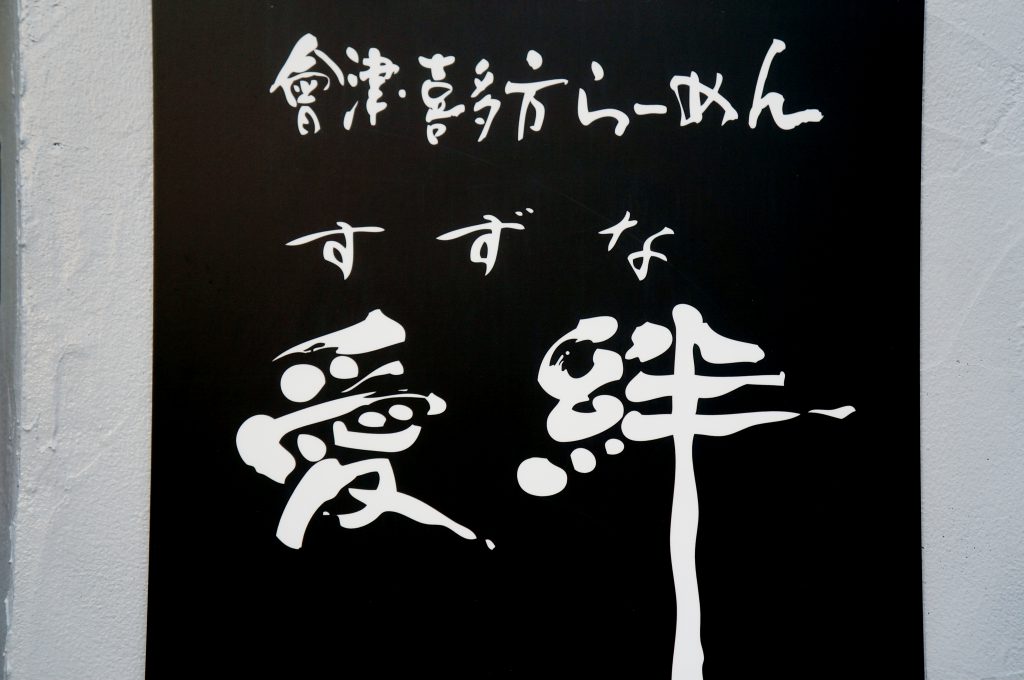 會津・喜多方らーめん
すずな
愛絆